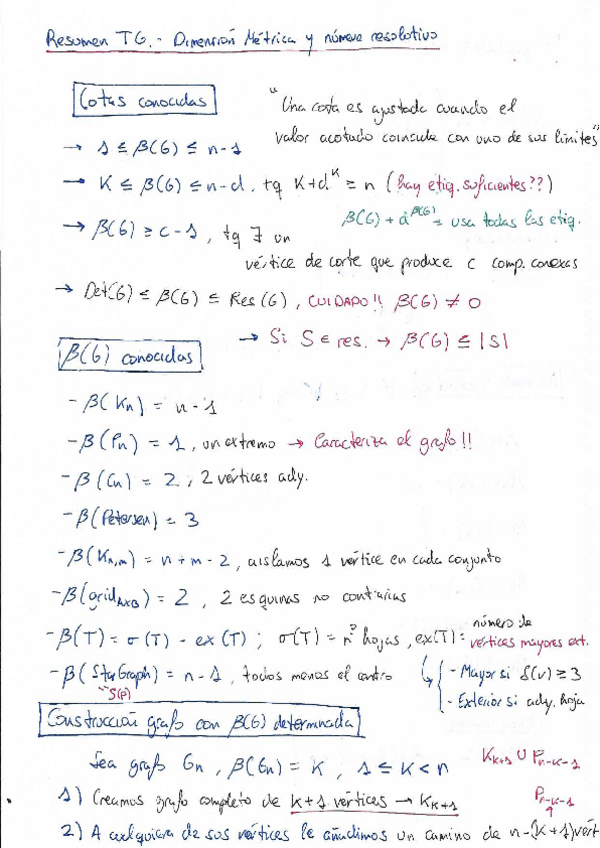 Resumen TG.- Dimensión Métrica y número resolutivo
Cotas conocidas
"Una cota es ajustada cuando el
valor acotado coincide con uno de sus límites"
→ 1 ≤ β(G) ≤ n-1
→ K ≤ β(G) ≤ n-d, tq K+d^K = n (hay etiq. suficientes??)
β(G) + d^β(G) = usa todas las etiq.
→ β(G) ≥ c-1, tq ∃ un
vértice de corte que produce c comp. conexas
→ Det(G) ≤ β(G) ≤ Res(G), CUIDADO!! β(G) ≠ 0
→ Si S ∈ res. → β(G) ≤ |S|
β(G) conocidas
- β(Kn) = n-1
- β(Pn) = 1, un extremo → Caracteriza el grafo!!
- β(Cn) = 2, 2 vértices ady.
- β(Petersen) = 3
- β(Kn,m) = n+m-2, aislamos 1 vértice en cada conjunto
- β(grid AxB) = 2, 2 esquinas no contrarias
- β(T) = σ(T) - ex(T); σ(T) = nº hojas, ex(T) = número de vértices mayores ext.
- β(StarGraph) = n-1, todos menos el centro
S(P)
- Mayor si δ(v) ≥ 3
- Exterior si ady. hoja
Construcción grafo con β(G) determinada
Sea grafo Gn, β(Gn) = K, 1 ≤ K < n
K_K+1 ∪ P_n-K-1
1) Creamos grafo completo de K+1 vértices → K_K+1
P_n-K-1
↑
2) A cualquiera de sus vértices le añadimos un camino de n-(K+1) vért